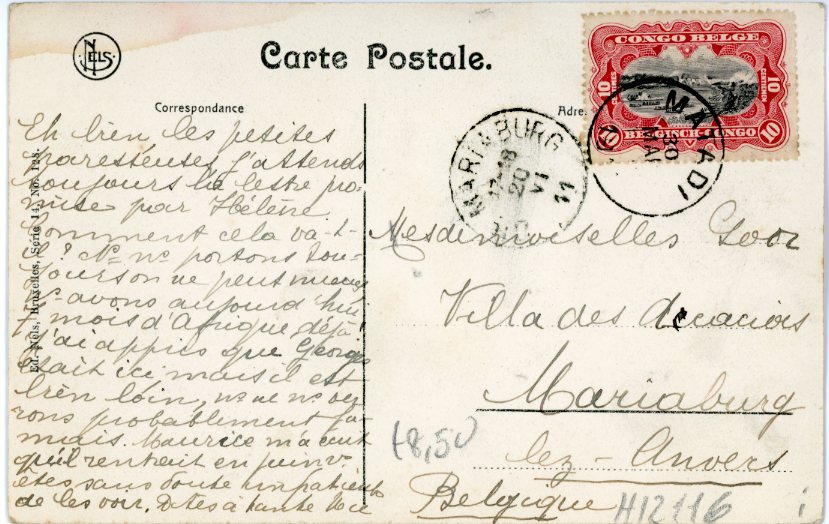 NELS
Carte Postale.
CONGO BELGE
10 CENTIMES
10 CENTIEMEN
BELGISCH-CONGO
MATADI
30
MAI
MARIABURG
17-18
20
VI
11
Correspondance
Adre
Ed. Nels, Bruxelles, Série 14, No. 128.
Eh bien les petites
paresseuses j'attends
toujours la lettre pro-
mise par Hélène.
Comment cela va-t-
il? Ns ns portons tou-
jours on ne peut mieux
Ns avons aujourd'hui
7 mois d'Afrique déjà!
J'ai appris que Georges
était ici mais il est
bien loin, ns ne ns ver-
rons probablement ja-
mais. Maurice m'a écrit
qu'il rentrait en juin v.
êtes sans doute impatients
de les voir. Dites à tante
Mesdemoiselles Goor
Villa des Acacias
Mariaburg
lez-Anvers
Belgique
18,50
H12116